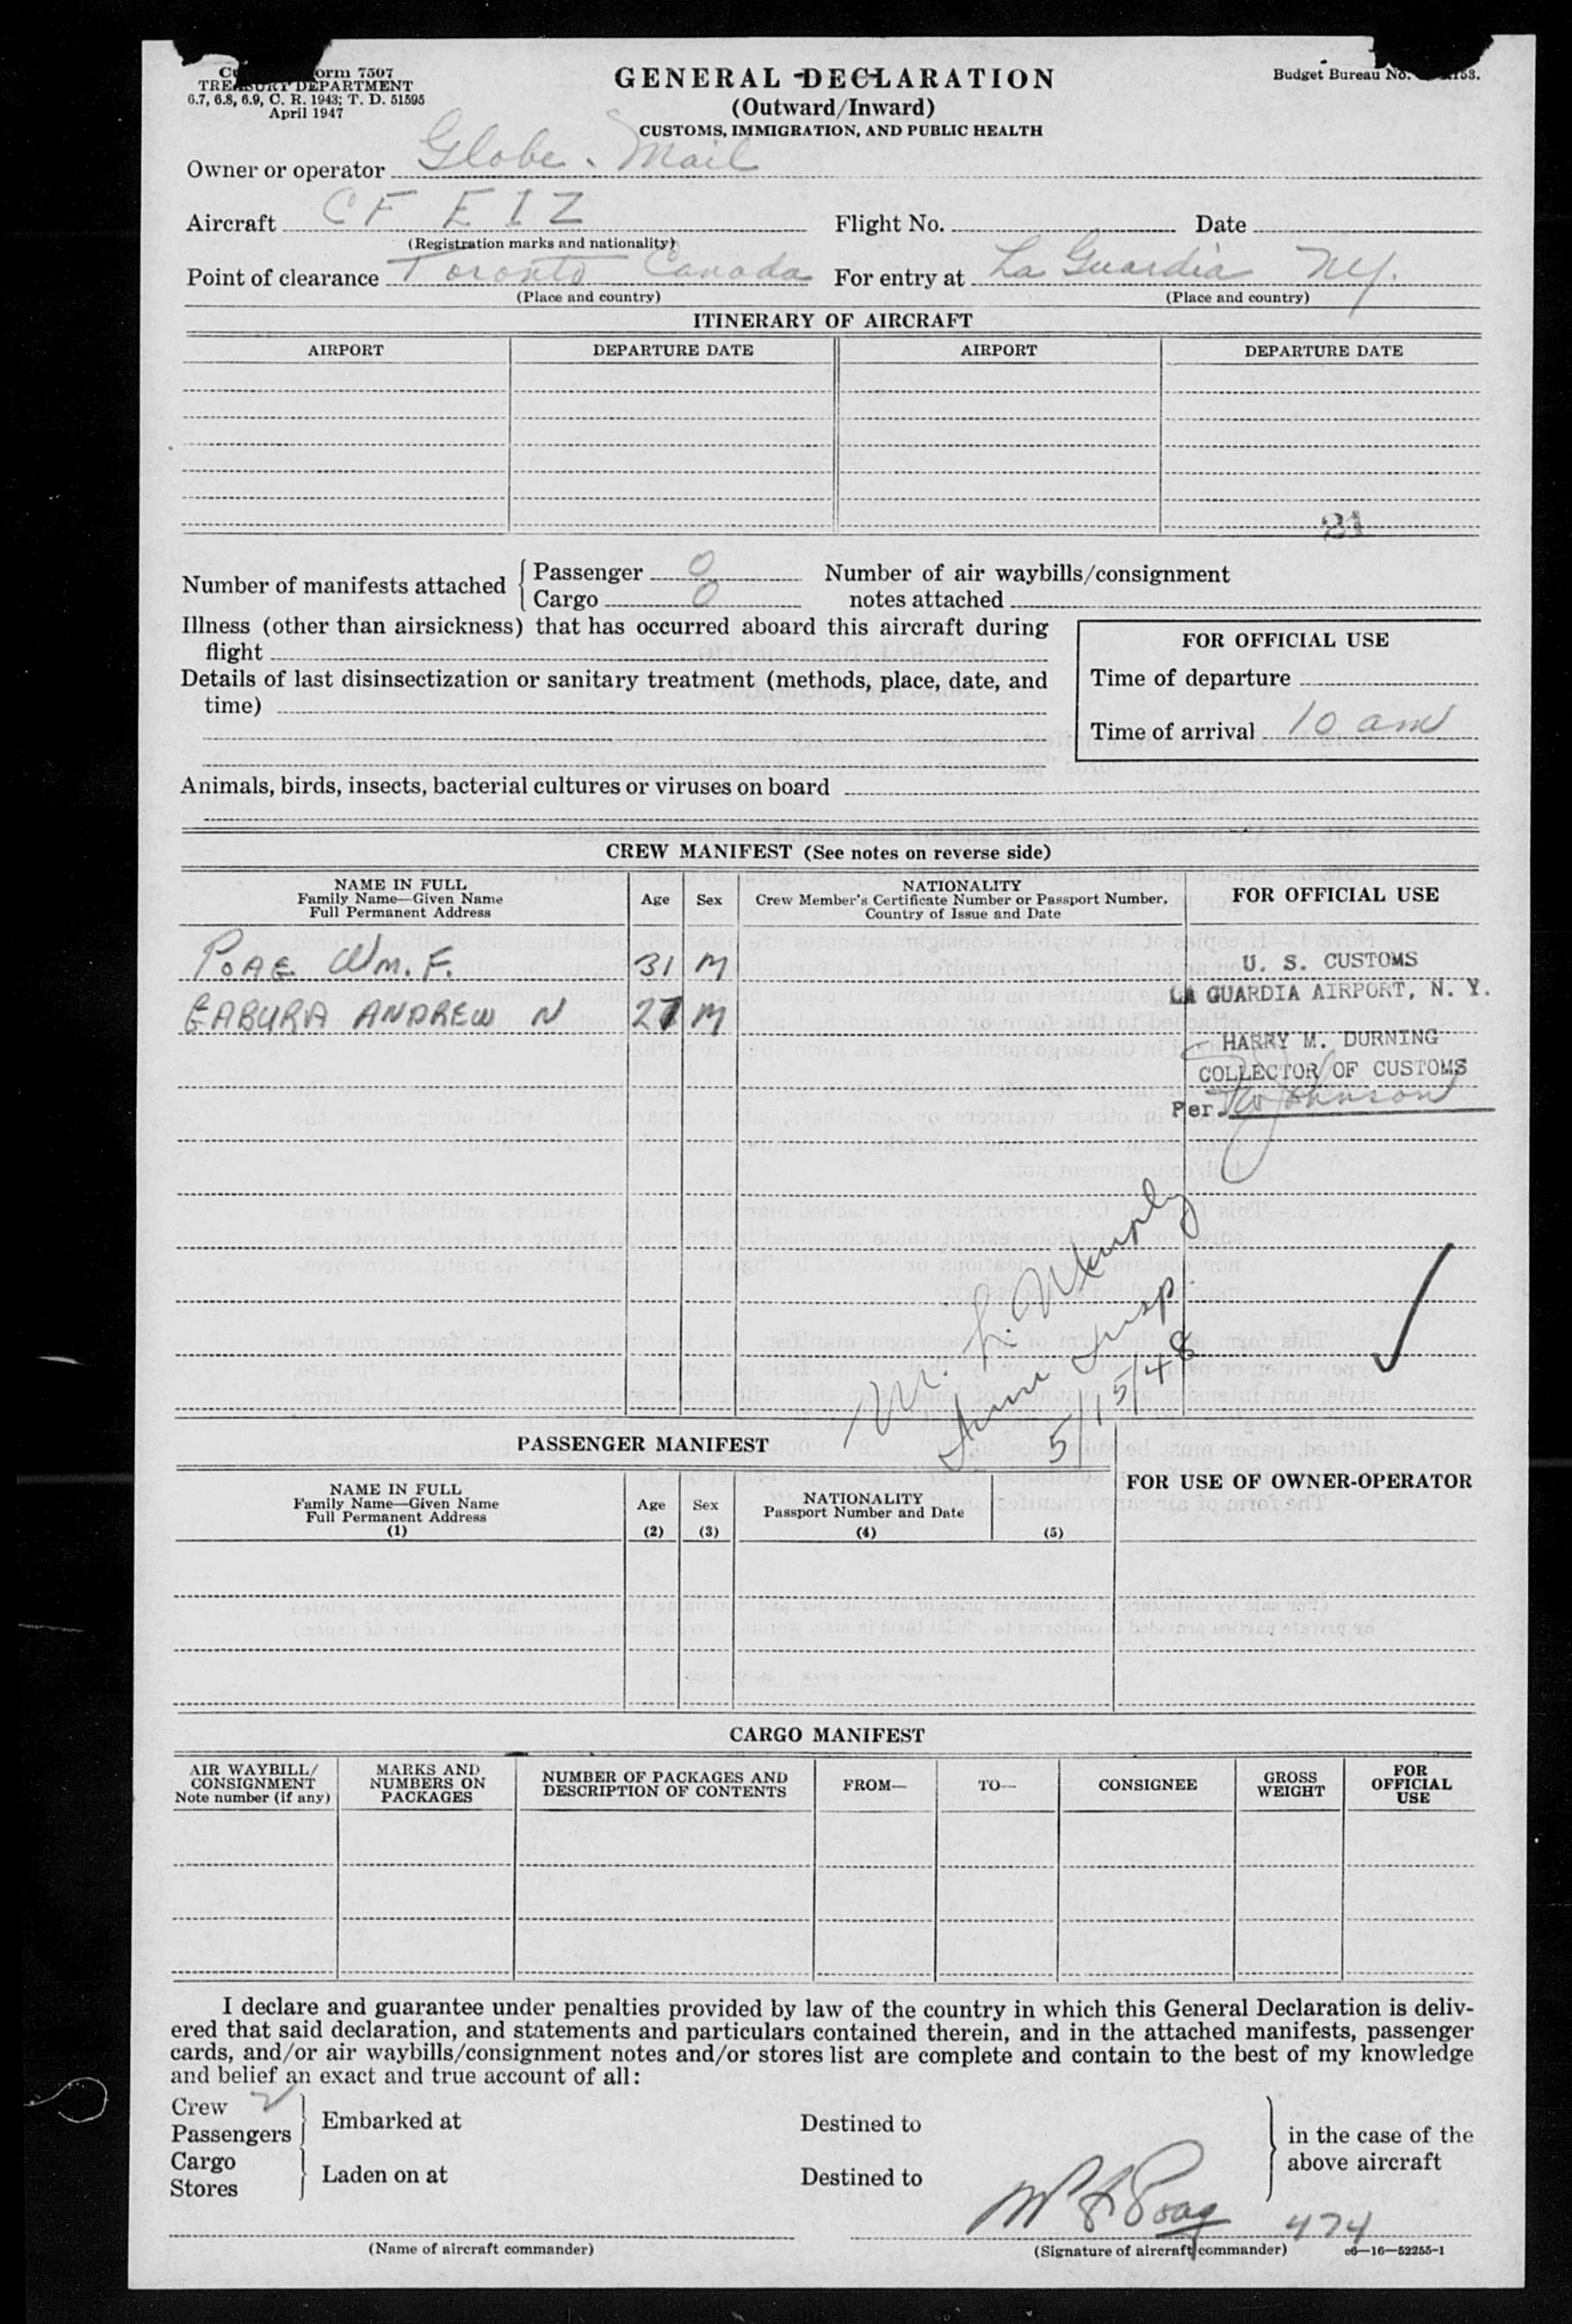 Form 7507
TREASURY DEPARTMENT
6.7, 6.8, 6.9, C. R. 1943; T. D. 51595
April 1947
GENERAL DECLARATION
(Outward/Inward)
CUSTOMS, IMMIGRATION, AND PUBLIC HEALTH
Budget Bureau No.
Owner or operator Globe. Mail
Aircraft CF EIZ Flight No. Date
(Registration marks and nationality)
Point of clearance Toronto Canada For entry at La Guardia NY.
(Place and country) (Place and country)
ITINERARY OF AIRCRAFT
AIRPORT DEPARTURE DATE AIRPORT DEPARTURE DATE
21
Number of manifests attached Passenger 0 Number of air waybills/consignment
Cargo 0 notes attached
Illness (other than airsickness) that has occurred aboard this aircraft during
flight
Details of last disinsectization or sanitary treatment (methods, place, date, and
time)
FOR OFFICIAL USE
Time of departure
Time of arrival 10 am
Animals, birds, insects, bacterial cultures or viruses on board
CREW MANIFEST (See notes on reverse side)
NAME IN FULL
Family Name—Given Name
Full Permanent Address
Age Sex
NATIONALITY
Crew Member's Certificate Number or Passport Number,
Country of Issue and Date
FOR OFFICIAL USE
Wm. F. 31 M
ANDREW N 27 M
U. S. CUSTOMS
LA GUARDIA AIRPORT, N. Y.
HARRY M. DURNING
COLLECTOR OF CUSTOMS
Per Johnson
Insp.
5/15/48
PASSENGER MANIFEST
NAME IN FULL
Family Name—Given Name
Full Permanent Address
(1)
Age
(2)
Sex
(3)
NATIONALITY
Passport Number and Date
(4) (5)
FOR USE OF OWNER-OPERATOR
CARGO MANIFEST
AIR WAYBILL/
CONSIGNMENT
Note number (if any)
MARKS AND
NUMBERS ON
PACKAGES
NUMBER OF PACKAGES AND
DESCRIPTION OF CONTENTS
FROM— TO— CONSIGNEE
GROSS
WEIGHT
FOR
OFFICIAL
USE
I declare and guarantee under penalties provided by law of the country in which this General Declaration is deliv-
ered that said declaration, and statements and particulars contained therein, and in the attached manifests, passenger
cards, and/or air waybills/consignment notes and/or stores list are complete and contain to the best of my knowledge
and belief an exact and true account of all:
Crew 2
Passengers Embarked at Destined to in the case of the
Cargo above aircraft
Stores Laden on at Destined to
W F Poag 474
(Name of aircraft commander) (Signature of aircraft commander) c6—16—52255-1